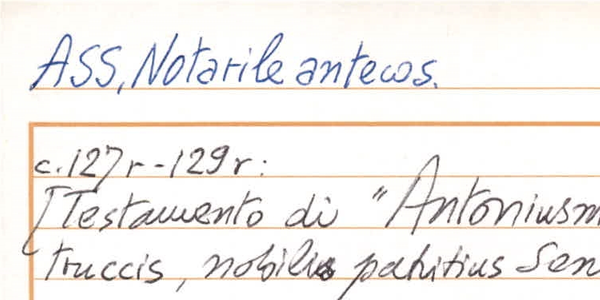 ASS, Notarile antecos.
c. 127r-129r:
[Testamento di "Antoniusm
truccis, nobilis patritius Sen